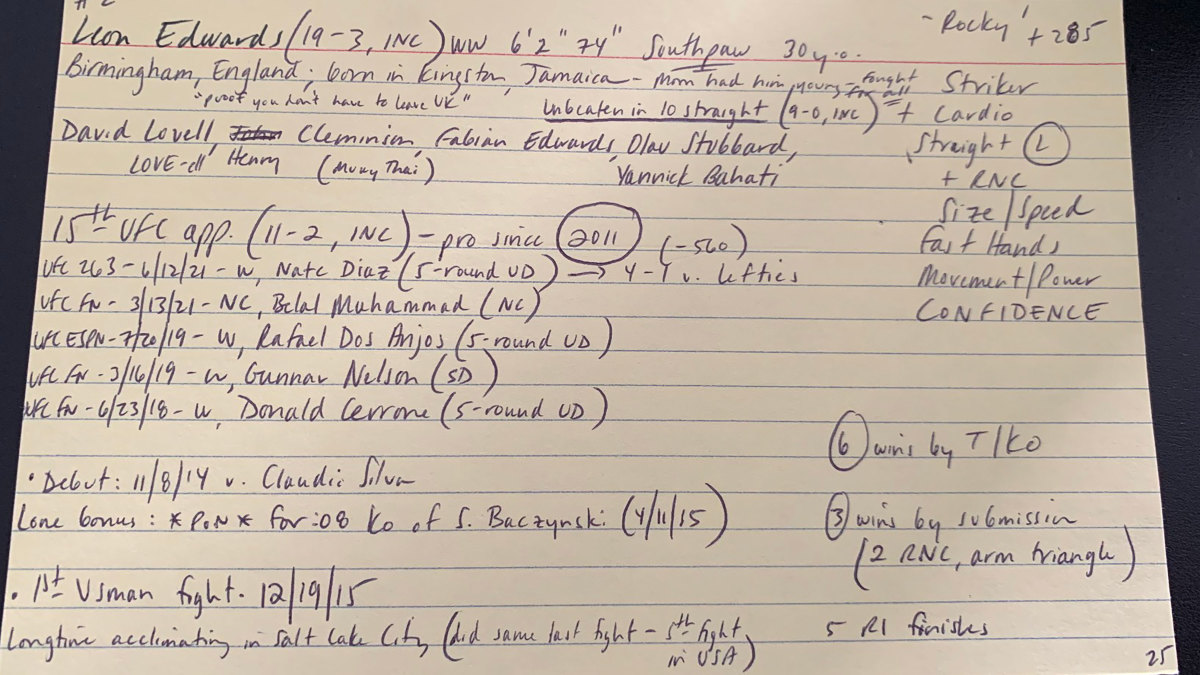 # 2
Leon Edwards (19-3, 1NC) WW 6'2" 74" Southpaw 30 y.o.
"Rocky" +285
Birmingham, England; born in Kingston, Jamaica - mom had him young - fought for all
"proof you don't have to leave UK"
Unbeaten in 10 straight (9-0, 1NC)
David Lovell, Henry Cleminson, Fabian Edwards, Olav Stubbard,
LOVE-ell (Muay Thai) Yannick Bahati
Striker
+ Cardio
Straight L
+ RNC
Size/Speed
Fast Hands
Movement/Power
CONFIDENCE
15th UFC app. (11-2, 1NC) - pro since 2011 (-560)
UFC 263 - 6/12/21 - W, Nate Diaz (5-round UD) → 4-1 v. lefties
UFC FN - 3/13/21 - NC, Belal Muhammad (NC)
UFC ESPN - 7/20/19 - W, Rafael Dos Anjos (5-round UD)
UFC FN - 3/16/19 - W, Gunnar Nelson (SD)
UFC FN - 6/23/18 - W, Donald Cerrone (5-round UD)
6 wins by T/KO
• Debut: 11/8/14 v. Claudio Silva
Lone bonus: *PoN* for :08 KO of S. Baczynski (4/11/15)
3 wins by submission
(2 RNC, arm triangle)
• 1st Usman fight - 12/19/15
Longtime acclimating in Salt Lake City (did same last fight - 5th fight in USA)
5 R1 finishes
25